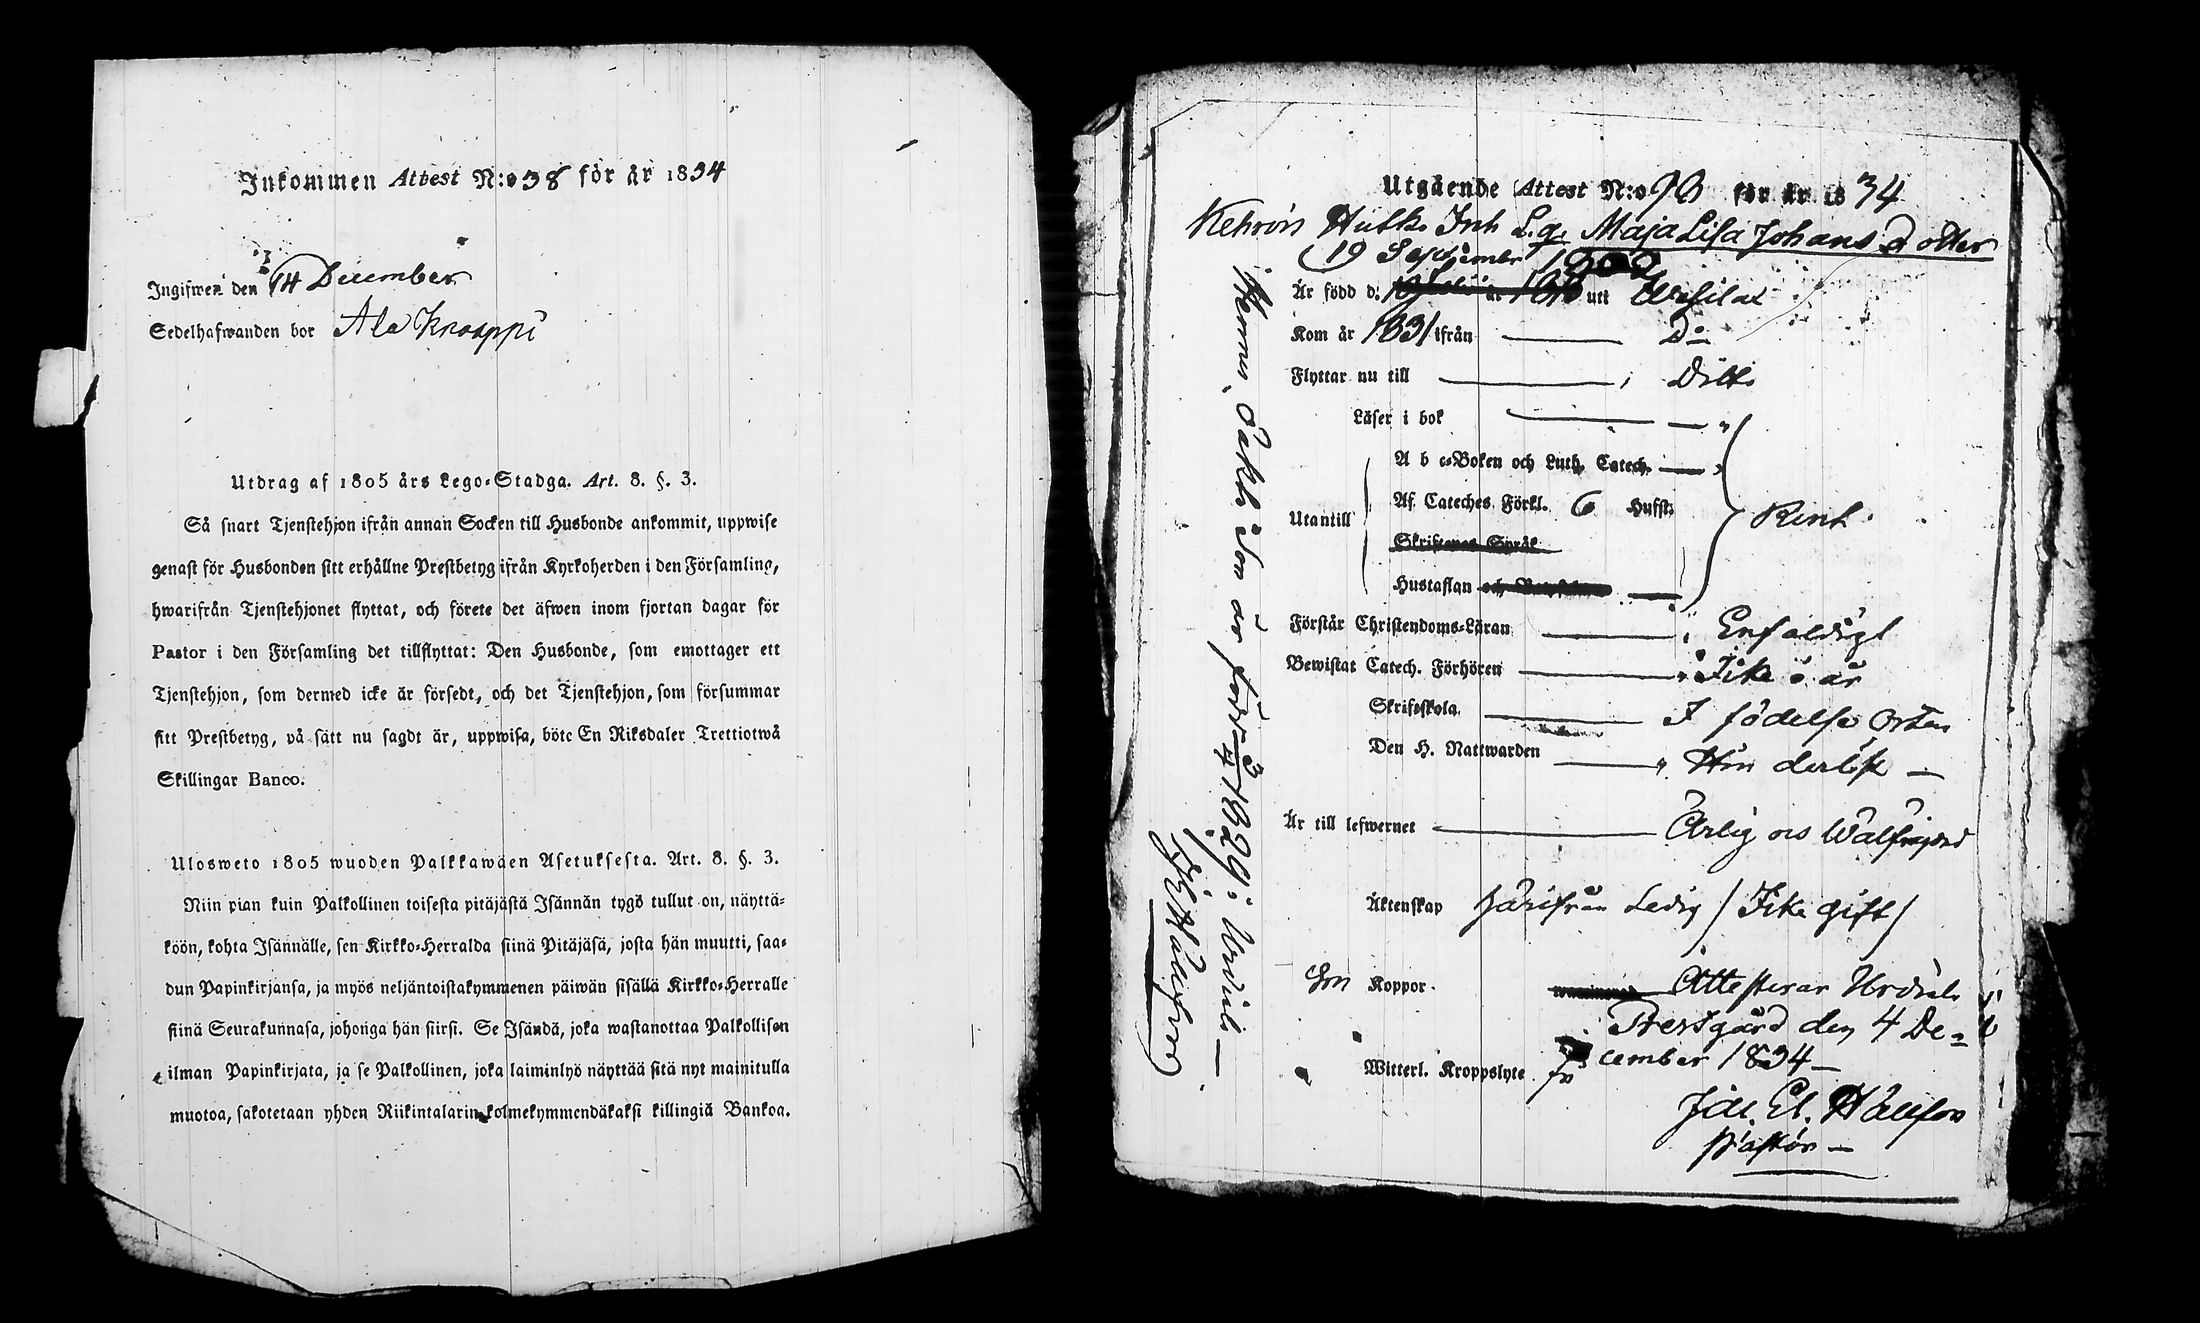 Inkommen Attest N:o 38 för år 1834
Ingifwen den 14 December
Sedelhafwanden bor Ala Knaappi
Utdrag af 1805 års Lego-Stadga. Art. 8. §. 3.
Så snart Tjenstehjon ifrån annan Socken till Husbonde ankommit, uppwise
genast för Husbonden sitt erhållne Prestbetyg ifrån Kyrkoherden i den Församling,
hwarifrån Tjenstehjonet flyttat, och förete det äfwen inom fjortan dagar för
Pastor i den Församling det tillflyttat: Den Husbonde, som emottager ett
Tjenstehjon, som dermed icke är försedt, och det Tjenstehjon, som försummar
sitt Prestbetyg, på sätt nu sagdt är, uppwisa, böte En Riksdaler Trettiotwå
Skillingar Banco.
Ulosweto 1805 wuoden Palkkawäen Asetuksesta. Art. 8. §. 3.
Niin pian kuin Palkollinen toisesta pitäjästä Isännän tygö tullut on, näyttä-
köön, kohta Isännälle, sen Kirkko-Herralda siinä Pitäjäsä, josta hän muutti, saa-
dun Papinkirjansa, ja myös neljäntoistakymmenen päiwän sisällä Kirkko-Herralle
siinä Seurakunnasa, johonga hän siirsi. Se Isändä, joka wastanottaa Palkollisen
ilman Papinkirjata, ja se Palkollinen, joka laiminlyö näyttää sitä nyt mainitulla
muotoa, sakotetaan yhden Riikintalarin kolmekymmendäkaksi killingiä Bankoa.
Utgående Attest N:o 93 för år 1834
Inh Maja Lisa Johans dotter
19 September
Är född d. uti
Kom år 1831 ifrån Do
Flyttar nu till Ditto
Läser i bok
A b c-Boken och Luth. Catech.
Af Cateches Förkl. 6 Hufst.
Utantill Rent
Skriftenes Språk
Hustaflan
Förstår Christendoms-Läran Enfaldigt
Bewistat Catech. Förhören Icke i år
Skriftskola I födelse Orten
Den H. Nattwarden
Är till lefwernet Ärlig
Äktenskap härifrån Ledig / Icke gift /
Koppor. Attesterar Urdiala
Prestgård den 4 De=
cember 1834
Witterl. Kroppslyte
Pastor
är född 3/4 1829: Urdiala